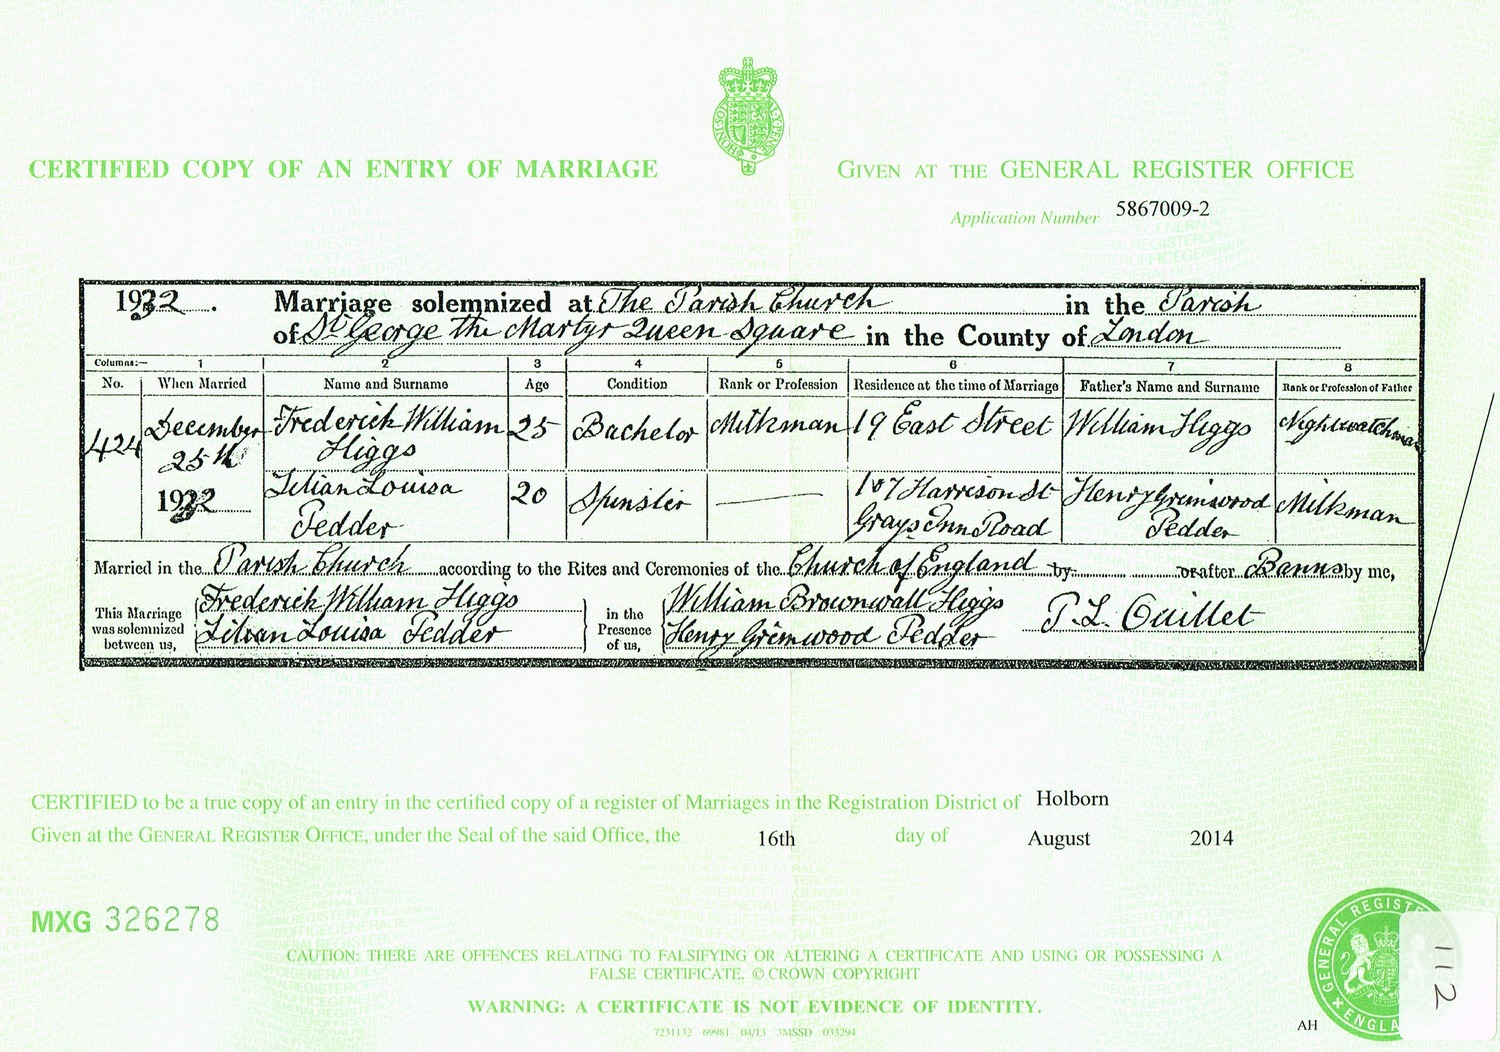 CERTIFIED COPY OF AN ENTRY OF MARRIAGE
GIVEN AT THE GENERAL REGISTER OFFICE
Application Number 5867009-2
1922. Marriage solemnized at The Parish Church in the Parish
of St George the Martyr Queen Square in the County of London
Columns:— 1 2 3 4 5 6 7 8
No. When Married Name and Surname Age Condition Rank or Profession Residence at the time of Marriage Father's Name and Surname Rank or Profession of Father
424 December 25th 1922 Frederick William Higgs 25 Bachelor Milkman 19 East Street William Higgs Nightwatchman
Lilian Louisa Pedder 20 Spinster — 107 Harrison St Grays Inn Road Henry Grimwood Pedder Milkman
Married in the Parish Church according to the Rites and Ceremonies of the Church of England by or after Banns by me,
This Marriage was solemnized between us, Frederick William Higgs Lilian Louisa Pedder in the Presence of us, William Brownwall Higgs Henry Grimwood Pedder P.L. Ouillet
CERTIFIED to be a true copy of an entry in the certified copy of a register of Marriages in the Registration District of Holborn
Given at the GENERAL REGISTER OFFICE, under the Seal of the said Office, the 16th day of August 2014
MXG 326278
CAUTION: THERE ARE OFFENCES RELATING TO FALSIFYING OR ALTERING A CERTIFICATE AND USING OR POSSESSING A
FALSE CERTIFICATE. © CROWN COPYRIGHT
WARNING: A CERTIFICATE IS NOT EVIDENCE OF IDENTITY.
7231132 69981 04/13 3MSSD 033294
AH
GENERAL REGIST
ENGLA
112